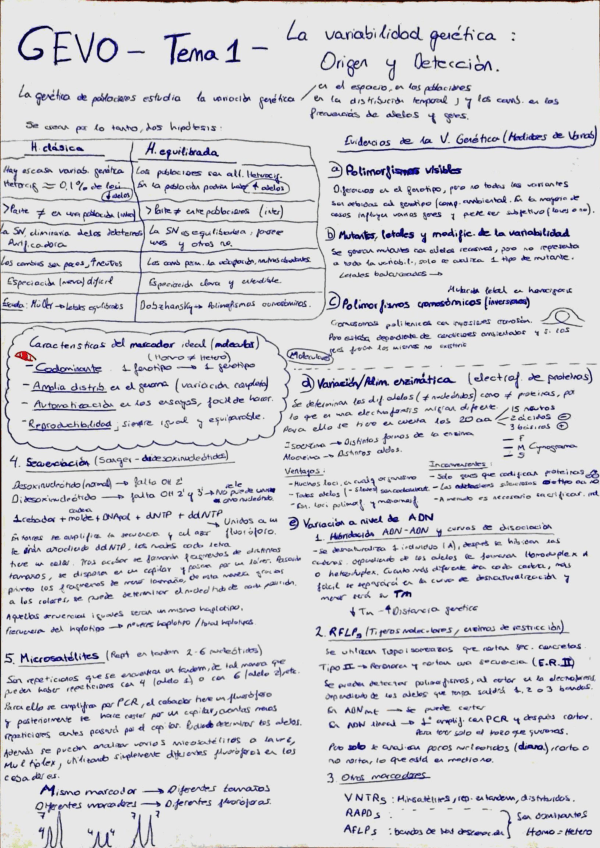 GEVO - Tema 1 - La variabilidad genética :
Origen y Detección.
La genética de poblaciones estudia la variación genética
en el espacio, en las poblaciones
en la distribución temporal y los camb. en las
frecuencias de alelos y genes.
Se crean por lo tanto, dos hipótesis:
H. clásica
H. equilibrada
Hay escasa variab. genética
Heterocig ≈ 0,1% de loci
Las poblaciones son all. Heterocig.
En la población podría haber ≠ alelos
>Parte ≠ en una población (intra)
>Parte ≠ entre poblaciones (inter)
La SN eliminaría delos deletéreos
Purificadora
La SN es equilibradora, favorece
unos y otros no.
Los cambios son pocos,
Especiación (nueva) difícil
Especiación clara y entendible.
Escuela: Müller → Letales equilibrados
Dobzhansky → Polimorfismos cromosómicos.
Características del marcador ideal (molecular)
(Homo ≠ Hetero)
- Codominante 1 fenotipo → 1 genotipo
- Amplia distrib. en el genoma (variación completa)
- Automatización en los ensayos, fácil de hacer.
- Reproducibilidad, siempre igual y equiparable.
4. Secuenciación (Sanger - dideoxinucleótidos)
Desoxinucleótido (normal) → falta OH 2'
Didesoxinucleótido → falta OH 2' y 3' → No puede unirse
otro nucleótido.
1 cebador + molde + DNApol + dNTP + ddNTP
Unidos a un
fluoróforo.
En tarros se amplifica la secuencia y al azar
se irán anadiendo ddNTP, los cuales cada letra
tiene un color. Tras acabar se formarán fragmentos de distintos
tamaños, se disponen en un capilar y pasan por un láser. Pasarán
primero los fragmentos de menor tamaño. De esta manera gracias
a los colores, se puede determinar el nucleótido de cada posición.
Aquellas secuencias iguales serán un mismo haplotipo.
frecuencia del haplotipo → nº veces haplotipo / total haplotipos.
5. Microsatélites (Rept en tandem 2-6 nucleótidos)
Son repeticiones que se encuentran en tandem, de tal manera que
pueden haber repeticiones con 4 (alelo 1) o con 6 (alelo 2) rete.
Para ello se amplifica por PCR, el cebador tiene un fluoróforo
y posteriormente se hace correr por un capilar, cuantas menos
repeticiones antes pasará por el capilar. Pudiendo determinar los alelos.
Además se pueden analizar varios microsatélites a la vez,
Multiplex, utilizando simplemente diferentes fluoróforos en los
cebadores.
Mismo marcador → Diferentes tamaños
Diferentes marcadores → Diferentes fluoróforos.
7 4 7
Evidencias de la V. Genética (Medidores de Variab)
a) Polimorfismos visibles
Diferencias en el genotipo, pero no todas las variantes
son debidas al genotipo (comp. ambiental). En la mayoría de
casos influyen varios genes y puede ser subjetivo
b) Mutantes, letales y modific. de la variabilidad
Se generan mutantes con alelos recesivos, pero no representa
a toda la variabil., solo se analiza 1 tipo de mutante.
Letales balanceados →
Mutación letal en homocigosis
c) Polimorfismos cromosómicos (inversiones)
Cromosomas politénicos con inversiones
Pero estaba dependiente de condiciones ambientales y si los
Moleculares
d) Variación/Alim. enzimática (electrof. de proteínas)
Se determinan los dif. alelos (≠ nucleótidos) como ≠ proteínas, por
lo que en una electroforesis migran diferente
Para ello se tiene en cuenta los 20 aa
15 neutros
2 ácidos ⊖
3 básicos ⊕
- Isoenzima → Distintas formas de la enzima
Aloenzima → Distintos alelos.
F
M
S
Cymograma
Ventajas:
- Muchos loci, en cualq organismo
- Todos alelos son codominantes
- Est. loci polimorf y monomorf
Inconvenientes:
- Solo genes que codifican proteínas
- A menudo es necesario sacrificar ind.
e) Variación a nivel de ADN
1. Hibridación ADN-ADN y curvas de disociación
- Se desnaturaliza 1 individuo (A), después se hibridan sus
cadenas. Dependiendo de los alelos se formarán Homoduplex
o heteroduplex. Cuanto más diferente sea cada cadena, más
fácil se separará en la curva de desnaturalización y
menor será su Tm
↓ Tm - ↑ Distancia genética
2. RFLPs (Tijeras moleculares, enzimas de restricción)
Se utilizan Topoisomerasas que cortan sec. concretas.
Tipo II → Reconocen y cortan una secuencia (E.R. II)
Se pueden detectar polimorfismos, al cortar en la electroforesis
dependiendo de los alelos que tenga saldrá 1, 2 o 3 bandas.
En ADNmt → Se puede cortar
En ADN lineal → 1º amplif. con PCR y después cortar.
Para tener solo el trozo que queramos.
Pero solo se analizan pocos nucleótidos (diana), corta o
no corta, lo que está en medio no.
3 Otros marcadores
VNTRs: Minisatélites, rep. en tandem, distribuidos.
RAPDs:
AFLPs: bandas de
Son dominantes
Homo = Hetero